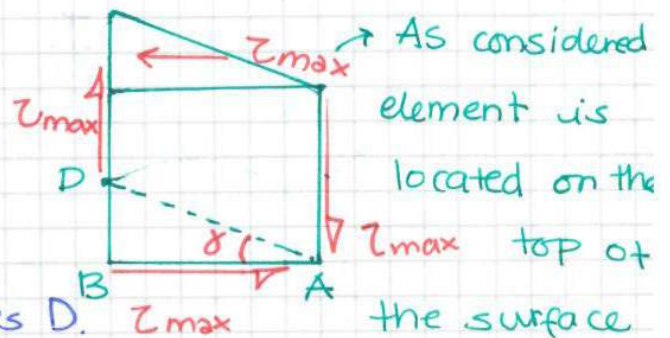 τmax → As considered
τmax element is
D located on the
γ τmax top of
B A
s D. τmax the surface